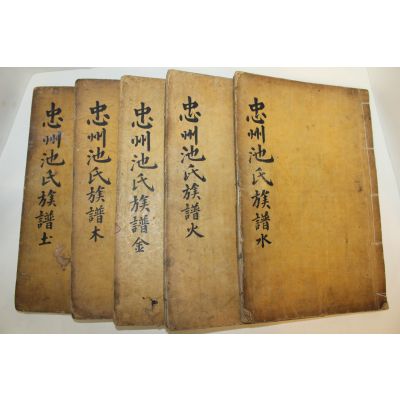 忠州池氏族譜水
忠州池氏族譜火
忠州池氏族譜金
忠州池氏族譜木
忠州池氏族譜土